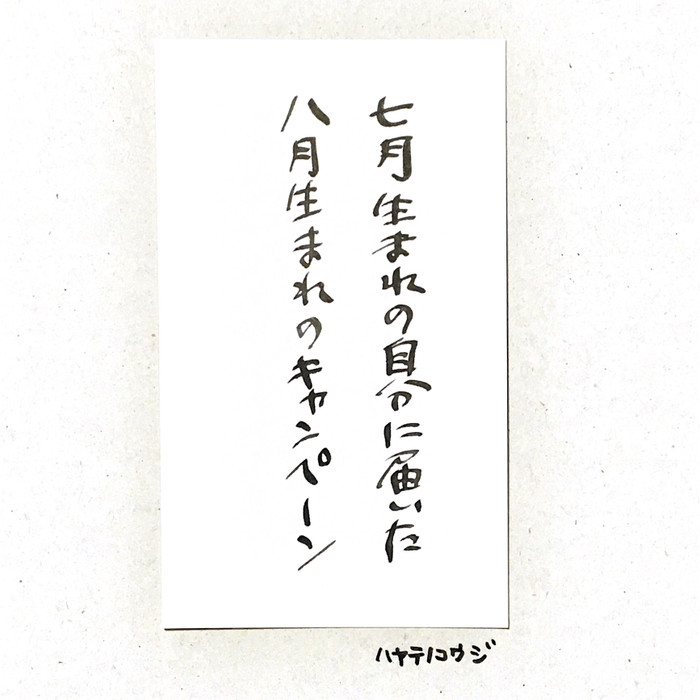 七月生まれの自分に届いた
八月生まれのキャンペーン
ハヤテノコウジ